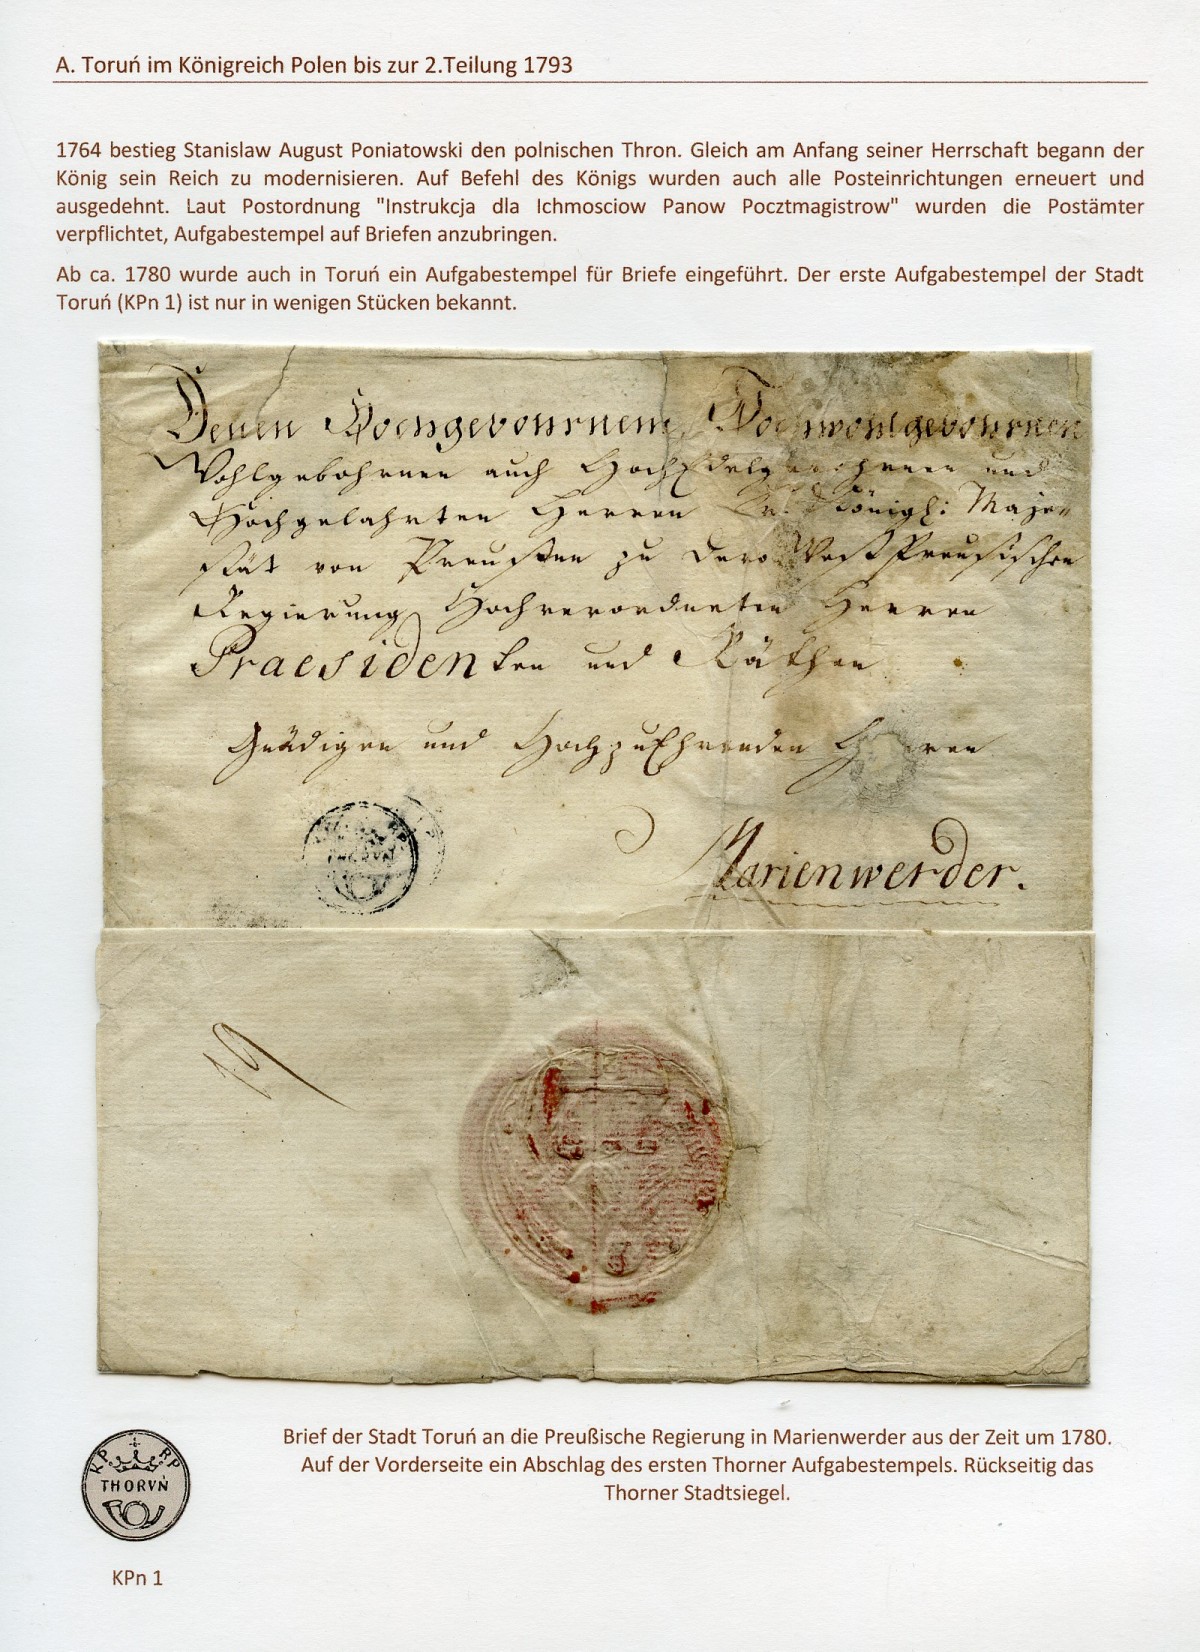 A. Toruń im Königreich Polen bis zur 2.Teilung 1793
1764 bestieg Stanislaw August Poniatowski den polnischen Thron. Gleich am Anfang seiner Herrschaft begann der
König sein Reich zu modernisieren. Auf Befehl des Königs wurden auch alle Posteinrichtungen erneuert und
ausgedehnt. Laut Postordnung "Instrukcja dla Ichmosciow Panow Pocztmagistrow" wurden die Postämter
verpflichtet, Aufgabestempel auf Briefen anzubringen.
Ab ca. 1780 wurde auch in Toruń ein Aufgabestempel für Briefe eingeführt. Der erste Aufgabestempel der Stadt
Toruń (KPn 1) ist nur in wenigen Stücken bekannt.
Denen Hochgebohrnem Hochwohlgebohrnen
Wohlgebohrnen auch HochEdelgebohrenen und
Hochgelahrten Herren Königh: Maje-
stät von Preußen zu Dero WestPreusischen
Regierung Hochverordneten Herren
Praesidenten und Räthen
Gnädigen und HochzuEhrenden Herren
THORUN
Marienwerder.
KP RP
THORVŃ
Brief der Stadt Toruń an die Preußische Regierung in Marienwerder aus der Zeit um 1780.
Auf der Vorderseite ein Abschlag des ersten Thorner Aufgabestempels. Rückseitig das
Thorner Stadtsiegel.
KPn 1